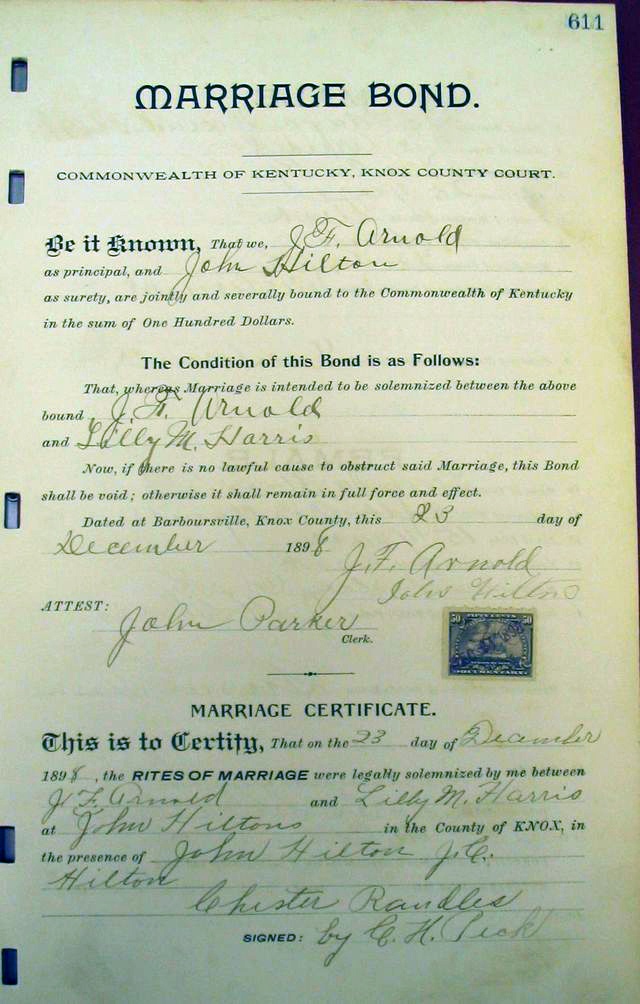 611
MARRIAGE BOND.
COMMONWEALTH OF KENTUCKY, KNOX COUNTY COURT.
Be it Known, That we, J.F. Arnold
as principal, and John Hilton
as surety, are jointly and severally bound to the Commonwealth of Kentucky
in the sum of One Hundred Dollars.
The Condition of this Bond is as Follows:
That, whereas Marriage is intended to be solemnized between the above
bound J.F. Arnold
and Lilly M. Harris
Now, if there is no lawful cause to obstruct said Marriage, this Bond
shall be void; otherwise it shall remain in full force and effect.
Dated at Barboursville, Knox County, this 23 day of
December 1898
J.F. Arnold
John Hilton
ATTEST:
John Parker
Clerk.
FIFTY CENTS
50 50
DOCUMENTARY.
MARRIAGE CERTIFICATE.
This is to Certify, That on the 23 day of December
1898, the RITES OF MARRIAGE were legally solemnized by me between
J F Arnold and Lilly M. Harris
at John Hiltons in the County of KNOX, in
the presence of John Hilton J.C.
Hilton
Chester Randles
SIGNED: by C. H. Peck